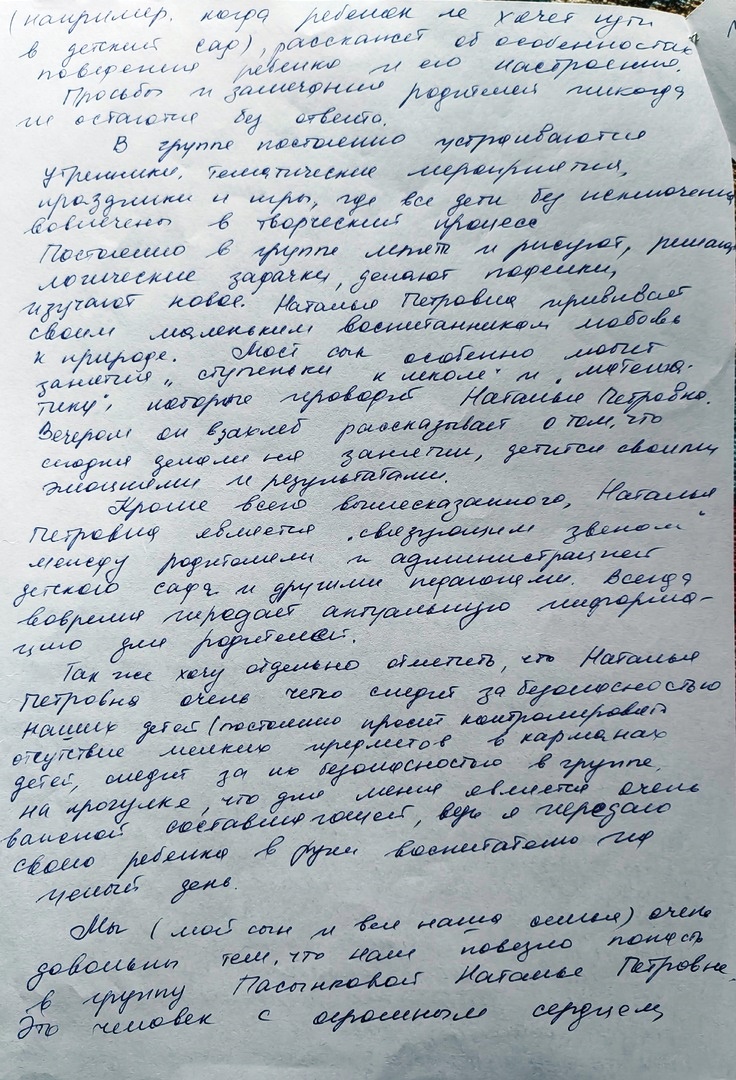 (например, когда ребенок не хочет идти
в детский сад), расскажет об особенностях
поведения ребенка и его настроения.
Просьбы и замечания родителей никогда
не остаются без ответа.
В группе постоянно устраиваются
утренники, тематические мероприятия,
праздники и игры, где все дети без исключения
вовлечены в творческий процесс
Постоянно в группе лепят и рисуют, решают
логические задачки, делают поделки,
изучают новое. Наталья Петровна прививает
своим маленьким воспитанникам любовь
к природе. Мой сын особенно любит
занятия "ступеньки к школе" и "матема-
тику", которые проводит Наталья Петровна.
Вечером он взахлеб рассказывает о том, что
сегодня делали на занятии, делится своими
эмоциями и результатами.
Кроме всего вышесказанного, Наталья
Петровна является "связующим звеном"
между родителями и администрацией
детского сада и другими педагогами. Всегда
вовремя передает актуальную информа-
цию для родителей.
Так же хочу отдельно отметить, что Наталья
Петровна очень четко следит за безопасностью
наших детей (постоянно просит контролировать
отсутствие мелких предметов в карманах
детей, следит за их безопасностью в группе,
на прогулке, что для меня является очень
важной составляющей, ведь я передаю
своего ребенка в руки воспитателю на
целый день.
Мы (мой сын и вся наша семья) очень
довольны тем, что нам повезло попасть
в группу Пасынковой Наталье Петровне.
Это человек с огромным сердцем,